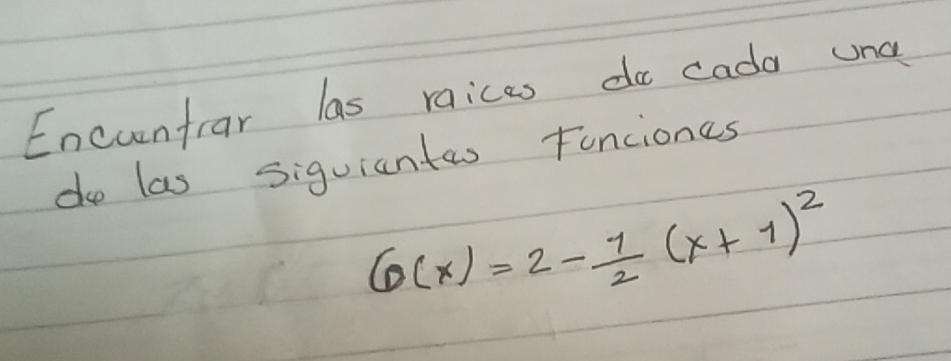 Encuentrar las raices de cada una
de las siguientes Funciones
G(x) = 2 - \frac{1}{2} (x + 1)^2